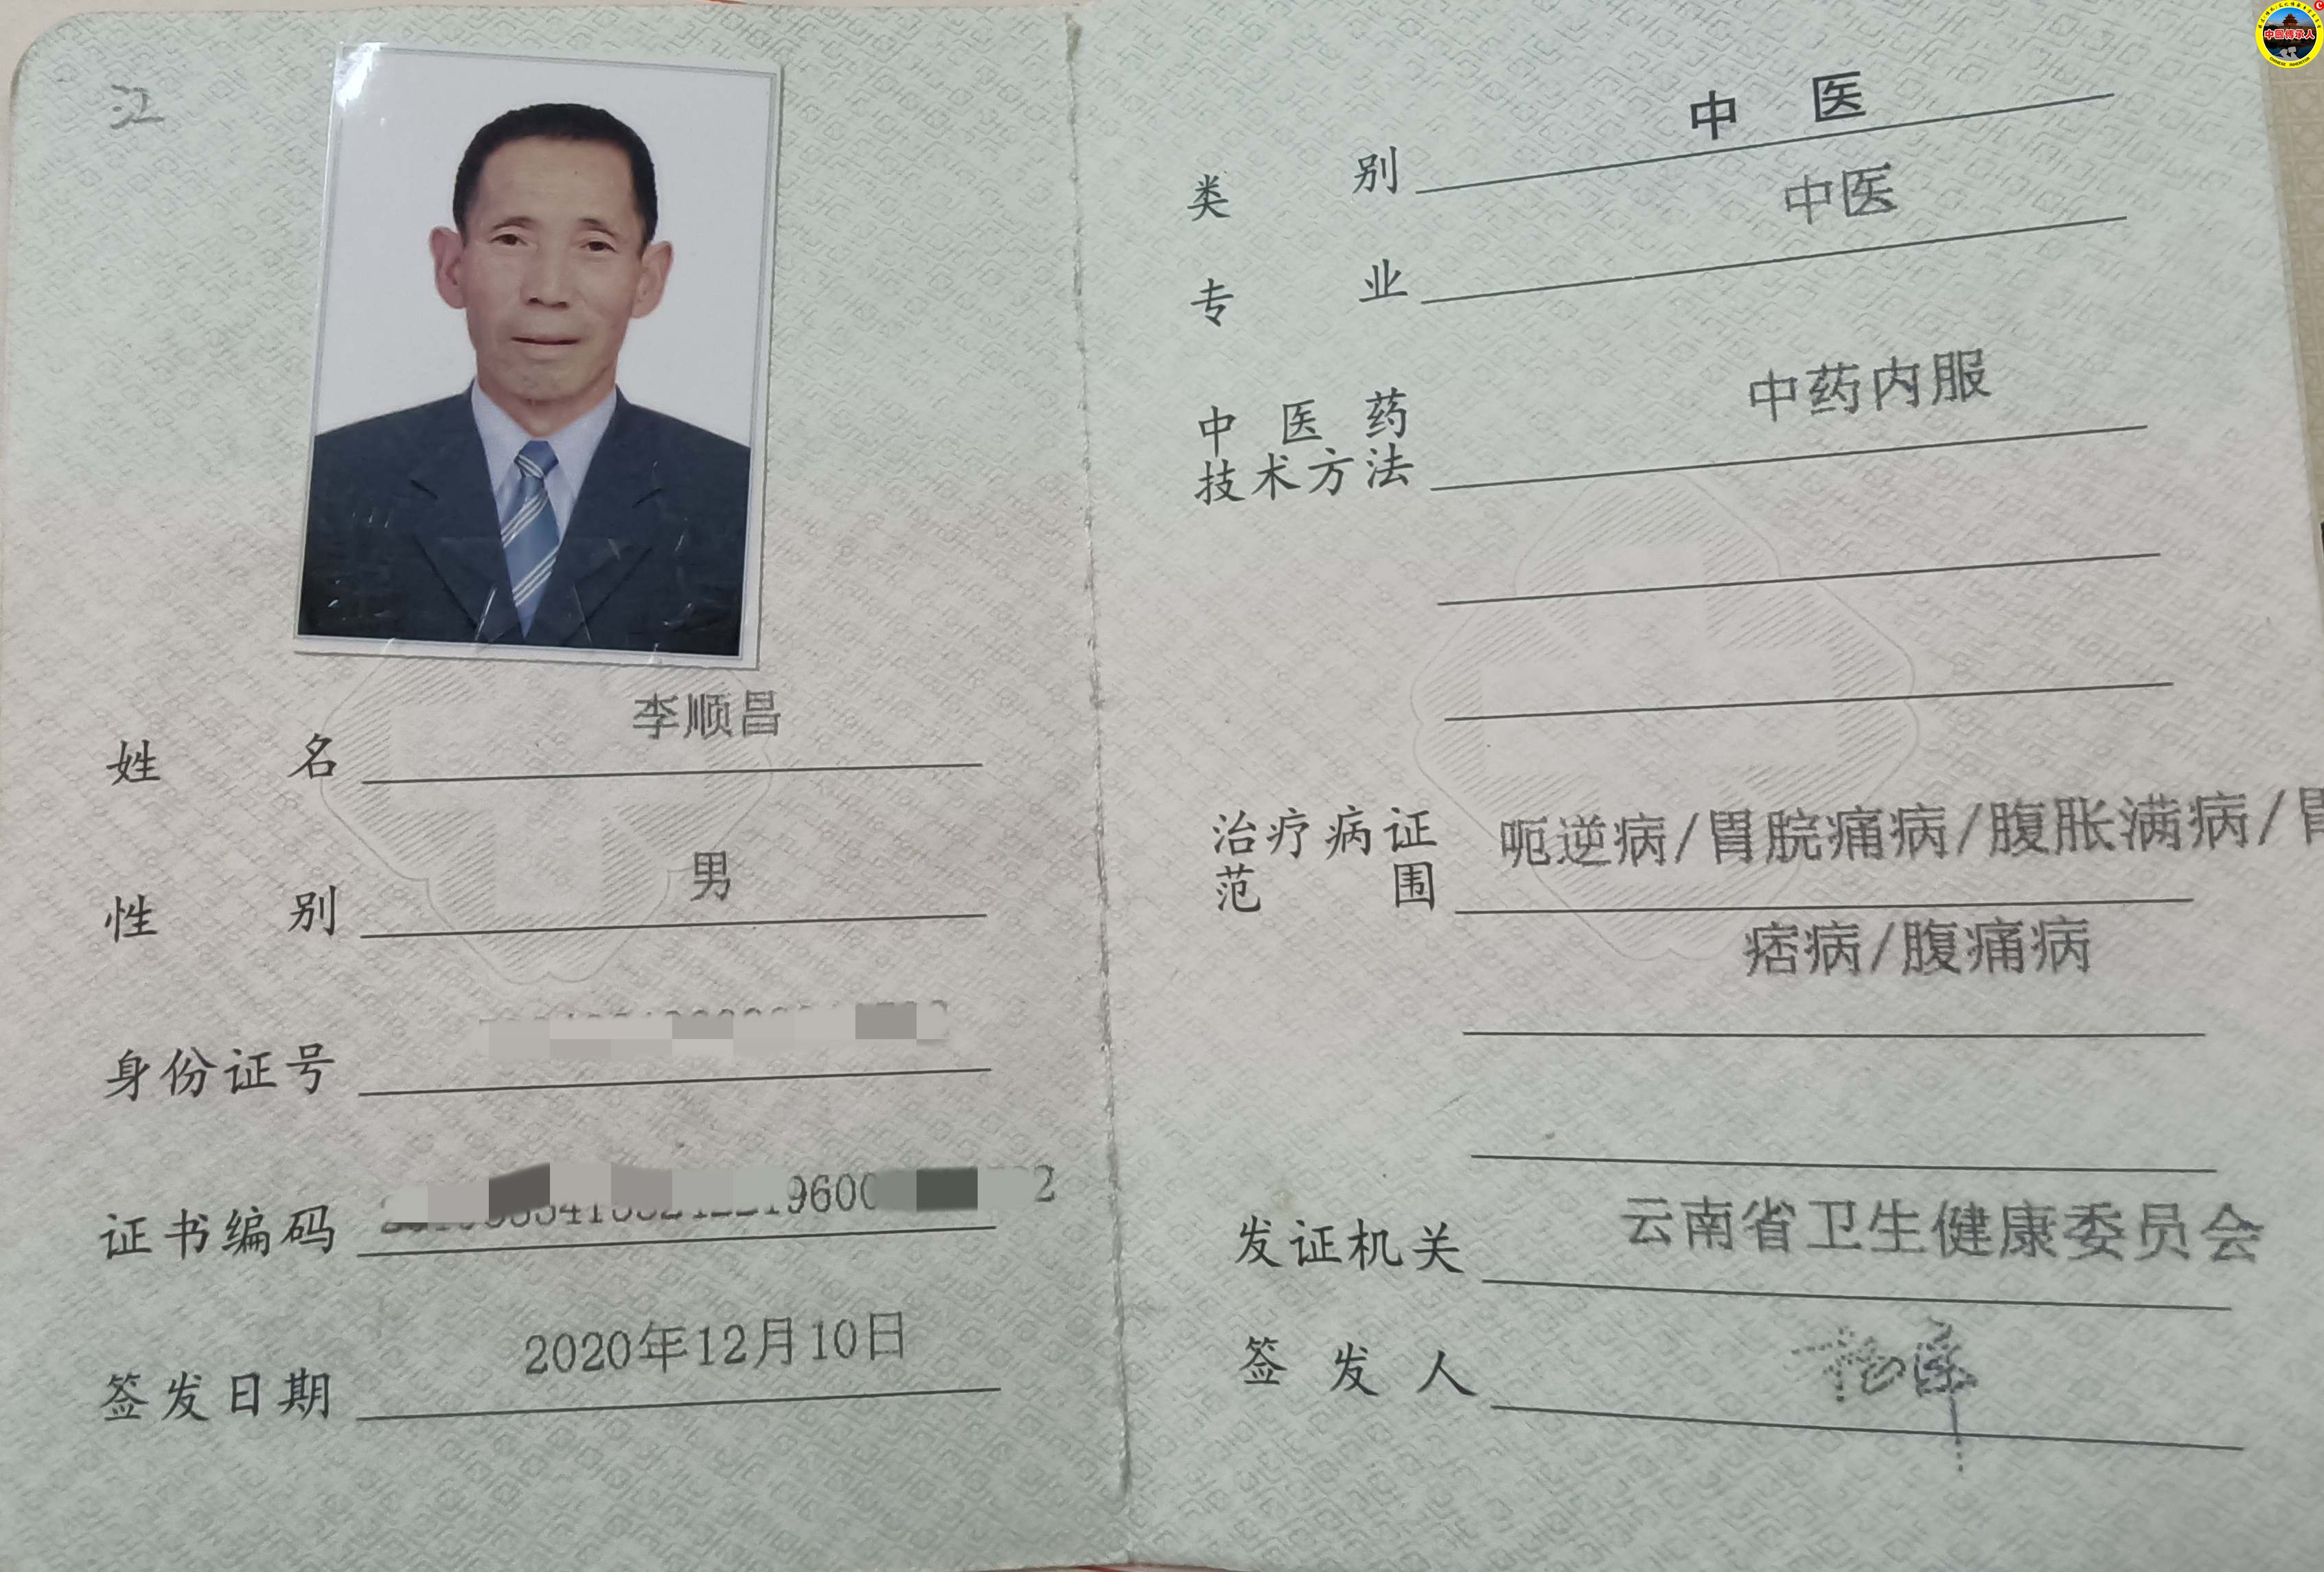 江
姓名 李顺昌
性别 男
身份证号
证书编码
签发日期 2020年12月10日
类别 中医
专业 中医
中医药
技术方法 中药内服
治疗病证
范围 呃逆病/胃脘痛病/腹胀满病/胃
痞病/腹痛病
发证机关 云南省卫生健康委员会
签发人
中國傳承人
CHINESE INHERITOR